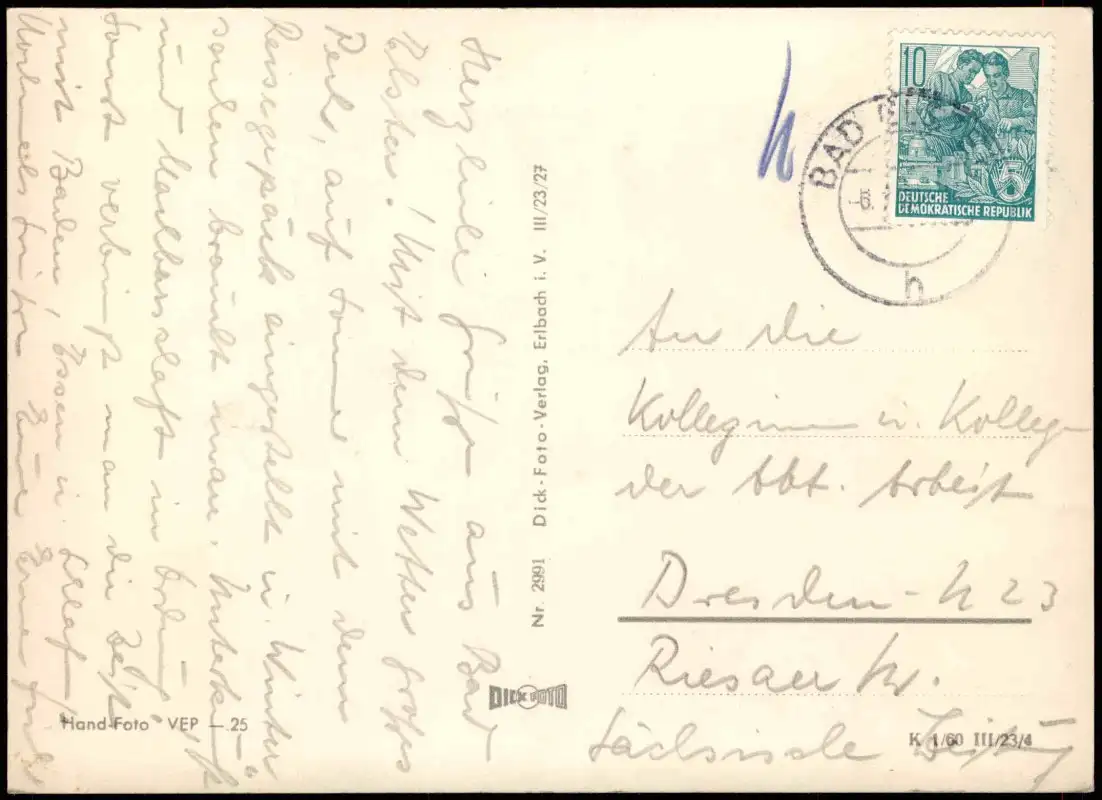 Herzliche Grüße aus Bad
Elster! Mit dem Wetter großes
Pech, auf Sonne mit dem
Reisegepäck eingestellt u. Winter
sachen braucht man. Unterkunft
und Mannschaft in Ordnung
sonst verbringt man die Zeit
mit Baden, Essen u. Schlaf
Nochmals für Eure
Nr. 2991 Dick-Foto-Verlag, Erlbach i. V. III/23/27
DICK FOTO
Hand-Foto VEP — 25
10
DEUTSCHE
DEMOKRATISCHE REPUBLIK
5
BAD
h
An die
Kolleginnen u. Kollegen
der Abt. Arbeit
Dresden-N 23
Riesaer Str.
Sächsische Zeitung
K 1/60 III/23/4